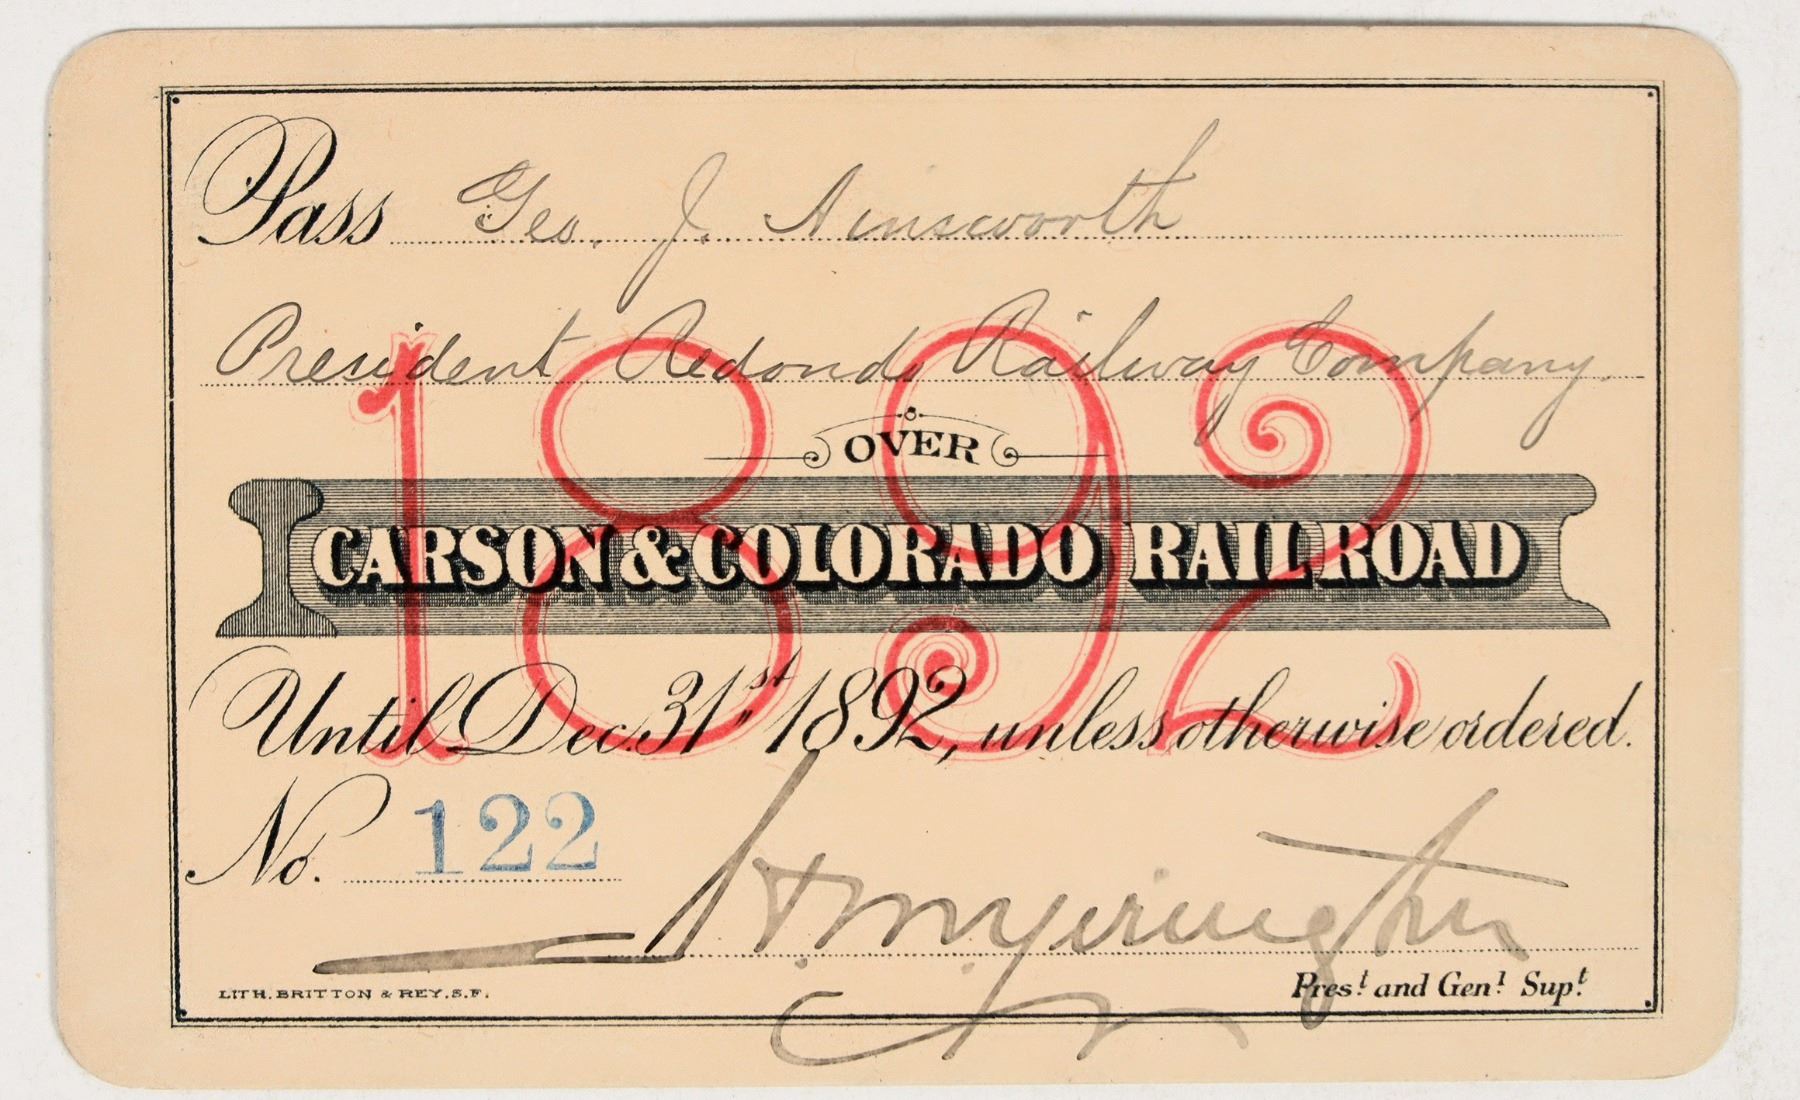 Pass Geo. J. Ainsworth
President Redondo Railway Company.
1892
OVER
CARSON & COLORADO RAILROAD
Until Dec. 31st 1892, unless otherwise ordered.
No. 122
H. M. Yerington
Prest. and Genl. Supt.
LITH. BRITTON & REY, S.F.